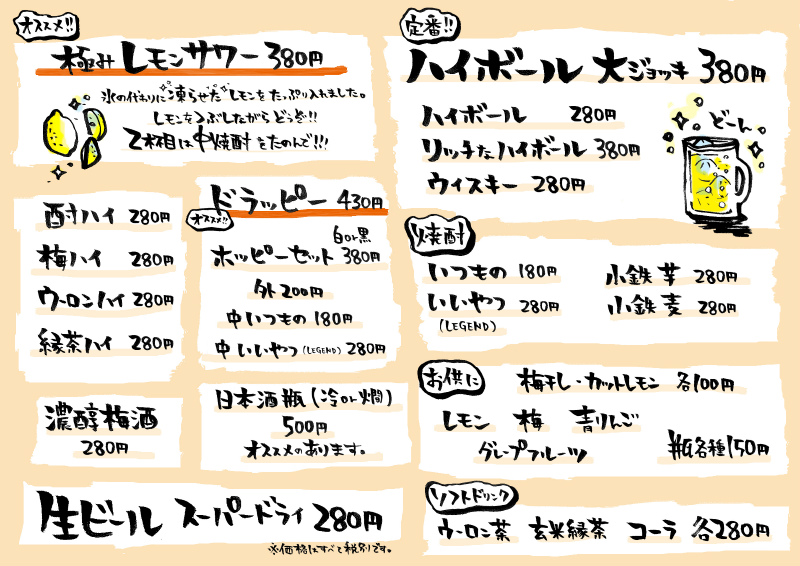 オススメ!!
極み レモンサワー 380円
氷の代わりに凍らせたレモンをたっぷり入れました。
レモンをつぶしながらどうぞ!!
2杯目は中焼酎をたのんで!!!
酎ハイ 280円
梅ハイ 280円
ウーロンハイ 280円
緑茶ハイ 280円
ドラッピー 430円
オススメ!!
白or黒
ホッピーセット 380円
外 200円
中いつもの 180円
中いいやつ(LEGEND) 280円
濃醇梅酒
280円
日本酒瓶(冷or燗)
500円
オススメのあります。
生ビール スーパードライ 280円
※価格はすべて税別です。
定番!!
ハイボール 大ジョッキ 380円
ハイボール 280円
リッチなハイボール 380円
ウィスキー 280円
どーん
焼酎
いつもの 180円
いいやつ 280円
(LEGEND)
小鉄 芋 280円
小鉄 麦 280円
お供に
梅干し・カットレモン 各100円
レモン 梅 青りんご
グレープフルーツ 瓶各種150円
ソフトドリンク
ウーロン茶 玄米緑茶 コーラ 各280円